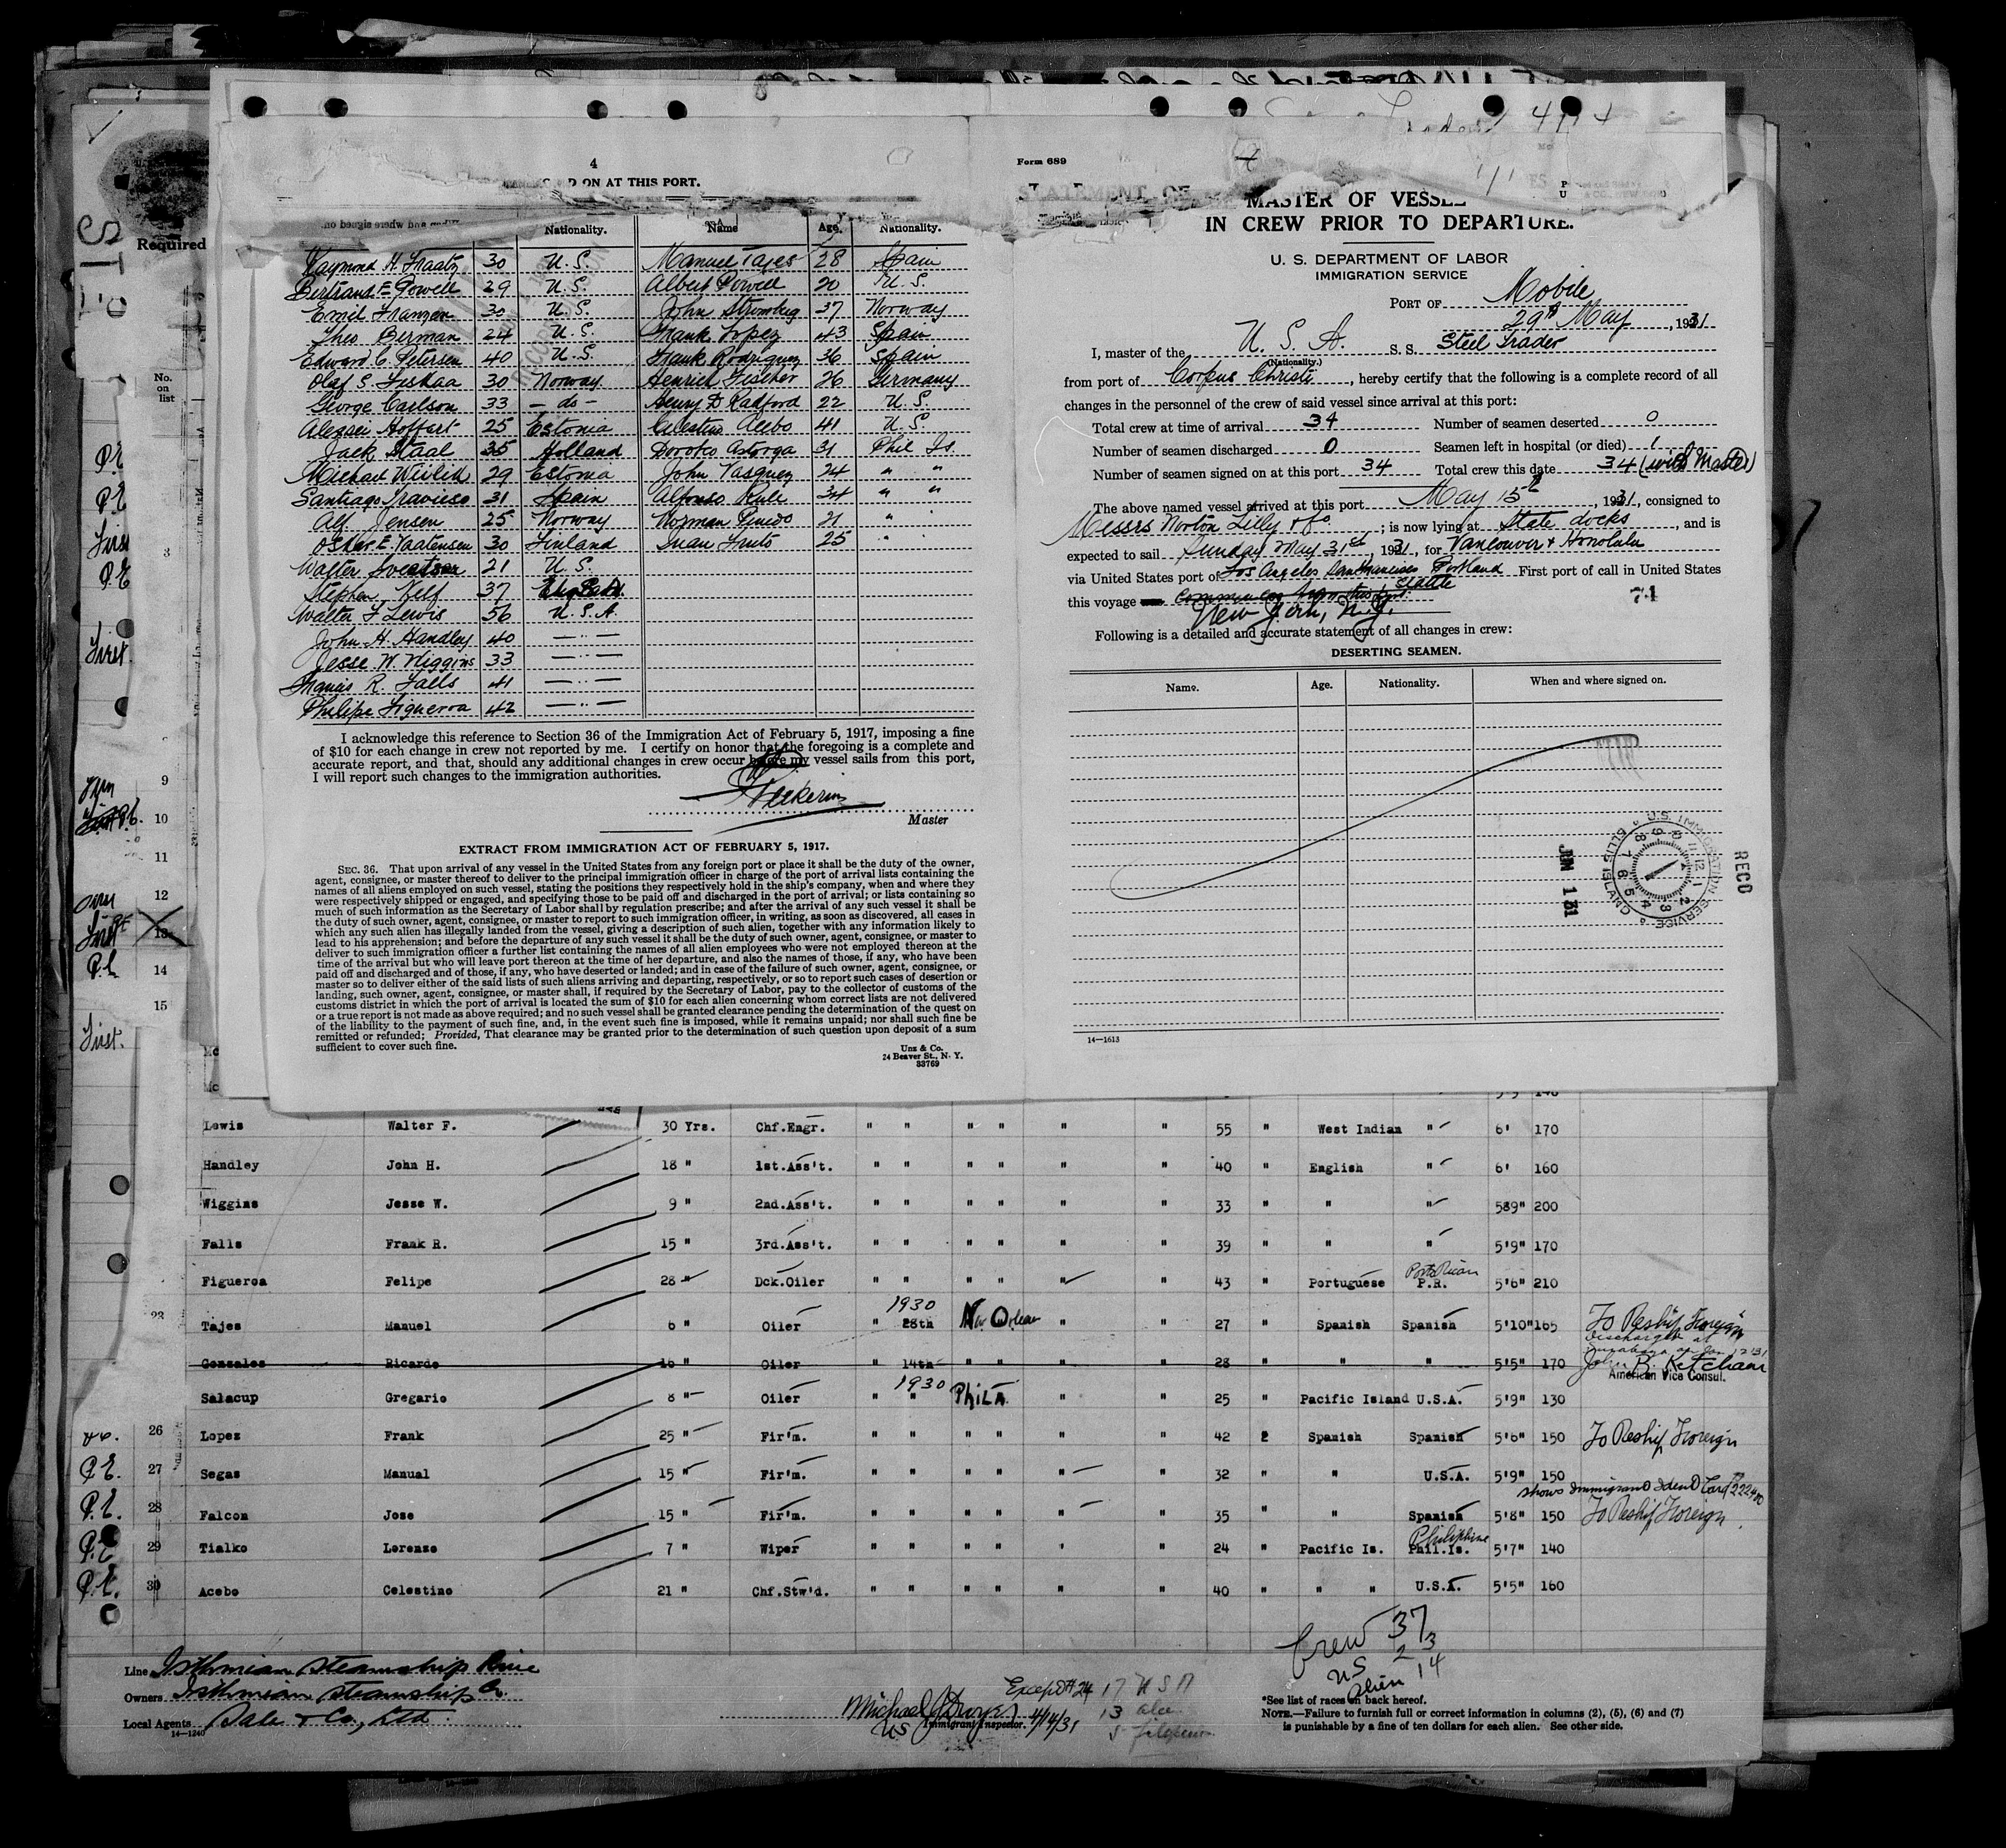 4
ON AT THIS PORT.
Nationality. Name Age. Nationality.
Raymond H. Fraatz 30 U.S. Manuel Tajes 28 Spain
Bertrand E Powell 29 U.S. Albert Powell 20 U.S.
Emil Franzen 30 U.S. John Stromberg 37 Norway
Theo Berman 24 U.S. Frank Lopez 43 Spain
Edward C. Petersen 40 U.S. Frank Rodriguez 36 Spain
Olaf S. 30 Norway. Henrich Fischer 26 Germany
George Carlson 33 - do - Henry D Radford 22 U.S.
Alexsei Hoffart 25 Estonia Celestino Acebo 41 U.S.
Jack Staal 35 Holland Doroteo Astorga 31 Phil Is.
Michael 29 Estonia John Vasquez 24 " "
Santiago Travieso 31 Spain Alfonso Rule 34 " "
Alf Jensen 25 Norway Norman Pinedo 21 "
Oskar E 30 Finland Juan 25 "
Walter 21 U.S.
Stephen Kelf 37 England.
Walter F Lewis 56 U.S.A.
John H. Handley 40 — " —
Jesse W Wiggins 33 — " —
Francis R. Falls 41 — " —
Philipe Figueroa 42 — " —
I acknowledge this reference to Section 36 of the Immigration Act of February 5, 1917, imposing a fine
of $10 for each change in crew not reported by me. I certify on honor that the foregoing is a complete and
accurate report, and that, should any additional changes in crew occur before my vessel sails from this port,
I will report such changes to the immigration authorities.
Master
EXTRACT FROM IMMIGRATION ACT OF FEBRUARY 5, 1917.
SEC. 36. That upon arrival of any vessel in the United States from any foreign port or place it shall be the duty of the owner,
agent, consignee, or master thereof to deliver to the principal immigration officer in charge of the port of arrival lists containing the
names of all aliens employed on such vessel, stating the positions they respectively hold in the ship's company, when and where they
were respectively shipped or engaged, and specifying those to be paid off and discharged in the port of arrival; or lists containing so
much of such information as the Secretary of Labor shall by regulation prescribe; and after the arrival of any such vessel it shall be
the duty of such owner, agent, consignee, or master to report to such immigration officer, in writing, as soon as discovered, all cases in
which any such alien has illegally landed from the vessel, giving a description of such alien, together with any information likely to
lead to his apprehension; and before the departure of any such vessel it shall be the duty of such owner, agent, consignee, or master to
deliver to such immigration officer a further list containing the names of all alien employees who were not employed thereon at the
time of the arrival but who will leave port thereon at the time of her departure, and also the names of those, if any, who have been
paid off and discharged and of those, if any, who have deserted or landed; and in case of the failure of such owner, agent, consignee, or
master so to deliver either of the said lists of such aliens arriving and departing, respectively, or so to report such cases of desertion or
landing, such owner, agent, consignee, or master shall, if required by the Secretary of Labor, pay to the collector of customs of the
customs district in which the port of arrival is located the sum of $10 for each alien concerning whom correct lists are not delivered
or a true report is not made as above required; and no such vessel shall be granted clearance pending the determination of the quest on
of the liability to the payment of such fine, and, in the event such fine is imposed, while it remains unpaid; nor shall such fine be
remitted or refunded; Provided, That clearance may be granted prior to the determination of such question upon deposit of a sum
sufficient to cover such fine.
Unz & Co.
24 Beaver St., N. Y.
33769
Form 689
STATEMENT OF MASTER OF VESSEL
IN CREW PRIOR TO DEPARTURE.
U. S. DEPARTMENT OF LABOR
IMMIGRATION SERVICE
PORT OF Mobile
29th May, 1931
I, master of the U. S. A. S. S. Steel Trader
(Nationality.)
from port of Corpus Christi, hereby certify that the following is a complete record of all
changes in the personnel of the crew of said vessel since arrival at this port:
Total crew at time of arrival 34 Number of seamen deserted 0
Number of seamen discharged 0 Seamen left in hospital (or died) 1
Number of seamen signed on at this port 34 Total crew this date 34 (with Master)
The above named vessel arrived at this port May 15th, 1931, consigned to
Messrs Norton Lilly & Co. ; is now lying at State docks, and is
expected to sail Sunday May 31st, 1931, for Vancouver & Honolulu
via United States port of Los Angeles San Francisco Portland Seattle First port of call in United States
this voyage New York, N.Y. 71
Following is a detailed and accurate statement of all changes in crew:
DESERTING SEAMEN.
Name. Age. Nationality. When and where signed on.
U.S. IMMIGRATION SERVICE ELLIS ISLAND
JUN 1 31
RECD
14—1613
Required
No.
on
list
3
9
10
11
12
13
14
15
Lewis Walter F. 30 Yrs. Chf.Engr. " " " " " " 55 " West Indian " 6' 170
Handley John H. 18 " 1st.Ass't. " " " " " " 40 " English " 6' 160
Wiggins Jesse W. 9 " 2nd.Ass't. " " " " " " 33 " " " 589" 200
Falls Frank R. 15 " 3rd.Ass't. " " " " " " 39 " " " 5'9" 170
Figueroa Felipe 28 " Dck.Oiler " " " " " " 43 " Portuguese Porto Rican P.R. 5'6" 210
23 Tajes Manuel 6 " Oiler " 1930 28th New Orleans " " 27 " Spanish Spanish 5'10" 165 To Reship Foreign
Gonzales Ricardo 16 " Oiler " 14th " " " " 28 " " " 5'5" 170 Discharged at Surabaya on Jan 12 '31
John B. Ketcham
American Vice Consul.
Salacup Gregario 8 " Oiler " 1930 " PHILA " " 25 " Pacific Island U.S.A. 5'9" 130
26 Lopez Frank 25 " Fir'm. " " " " " " 42 2 Spanish Spanish 5'6" 150 To Reship Foreign
P.E. 27 Segas Manual 15 " Fir'm. " " " " " " 32 " " U.S.A. 5'9" 150
shows Immigrant Ident Card 222400
P.E. 28 Falcon Jose 15 " Fir'm. " " " " " " 35 " " Spanish 5'8" 150 To Reship Foreign
P.E. 29 Tialko Lorenzo 7 " Wiper " " " " ' " 24 " Pacific Is. Philiphine Phil.Is. 5'7" 140
P.E. 30 Acebo Celestino 21 " Chf.Stw'd. " " " " " " 40 " " " U.S.A. 5'5" 160
Crew 37
US 23
Alien 14
Line Isthmian Steamship Line
Owners Isthmian Steamship Co.
Local Agents Dale & Co., Ltd
14—1240
Except #24 17 USA
13
5
Michael J Dwyer 4/14/31
US Immigrant Inspector.
*See list of races on back hereof.
NOTE.—Failure to furnish full or correct information in columns (2), (5), (6) and (7)
is punishable by a fine of ten dollars for each alien. See other side.